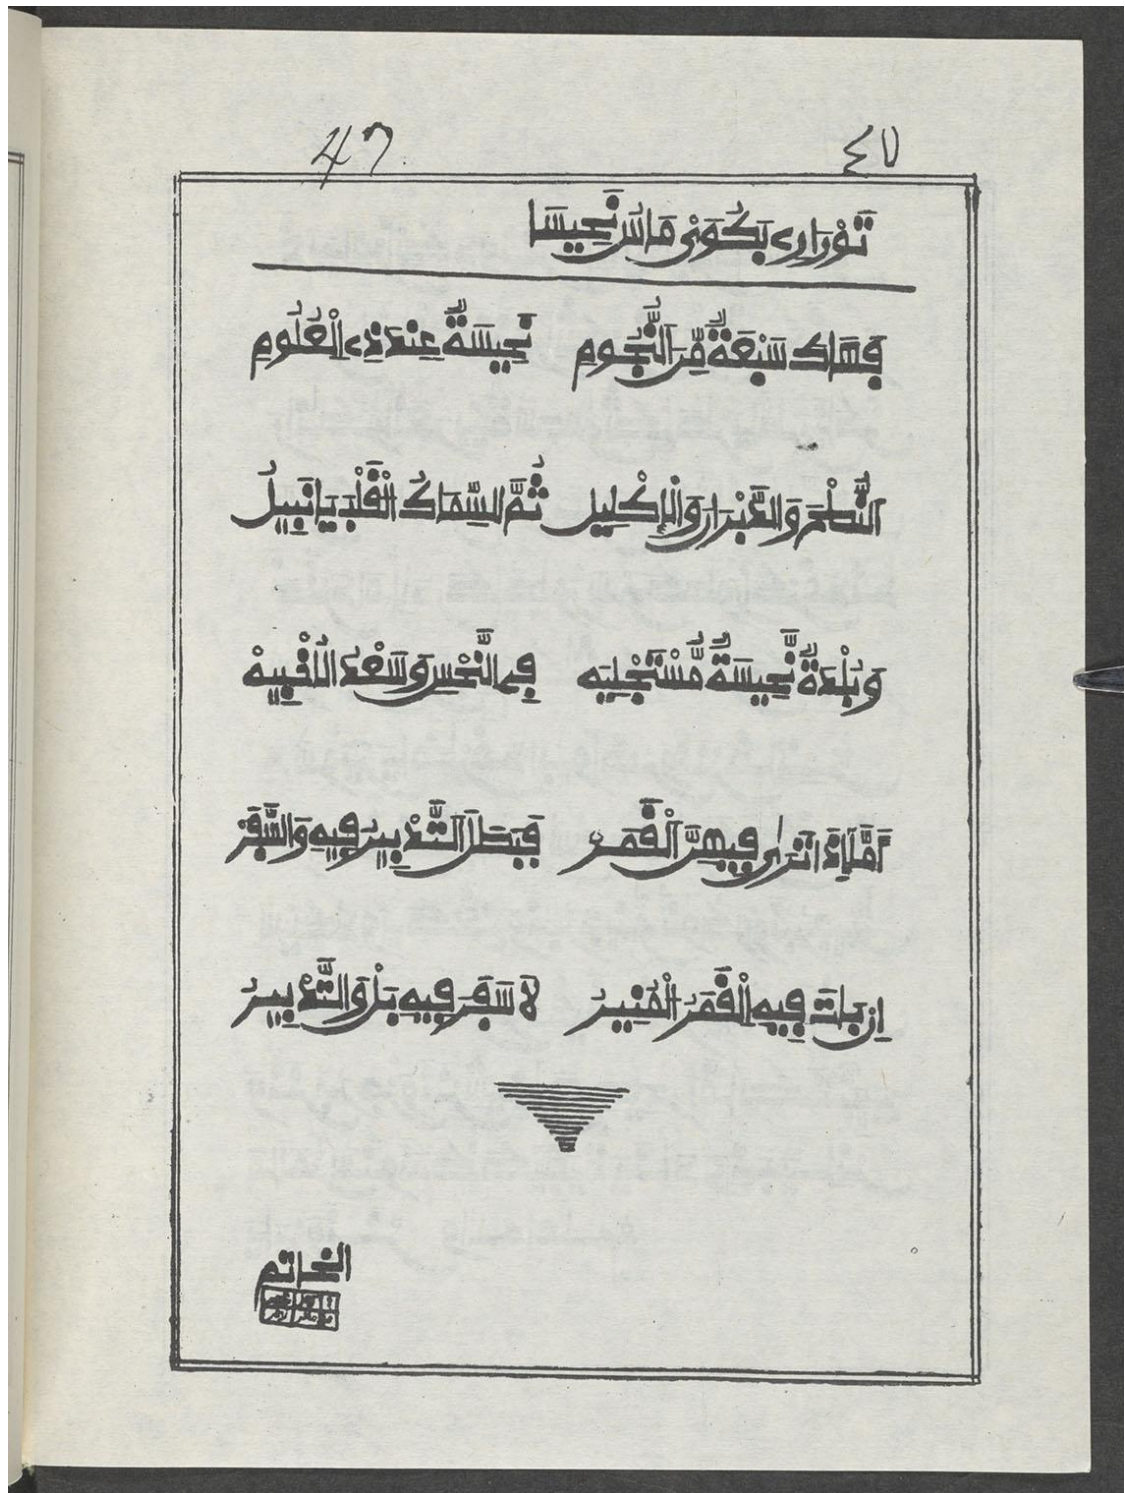 ٤٧ 47
تَوْرَارِی بَكُوَیْ مَاسُ نَحِيسَا
فَهَاكَ سَبْعَةٌ مِّنَ النُّجُومِ نَحِيسَةٌ عِنْدَ ذِی الْعُلُومِ
النَّطْحُ وَالدَّبْرَانِ وَالْإِكْلِيلُ ثُمَّ السِّمَاكُ الْقَلْبُ يَا نَبِيلُ
وَبَلْدَةٌ نَّحِيسَةٌ مُّسْتَجْلِيَه فِی النَّحْسِ وَسَعْدُ الْاَخْبِيَهْ
اَمَّا اِذَا نَزَلَ فِيهِنَّ الْقَمَر فَبَطَلَ التَّدْبِيرُ فِيهِ وَالسَّفَر
اِن بَاتَ فِيهِ الْقَمَرُ الْمُنِيرُ لَا سَفَرَ فِيهِ بَلْ وَالتَّدْبِيرُ
الخاتم